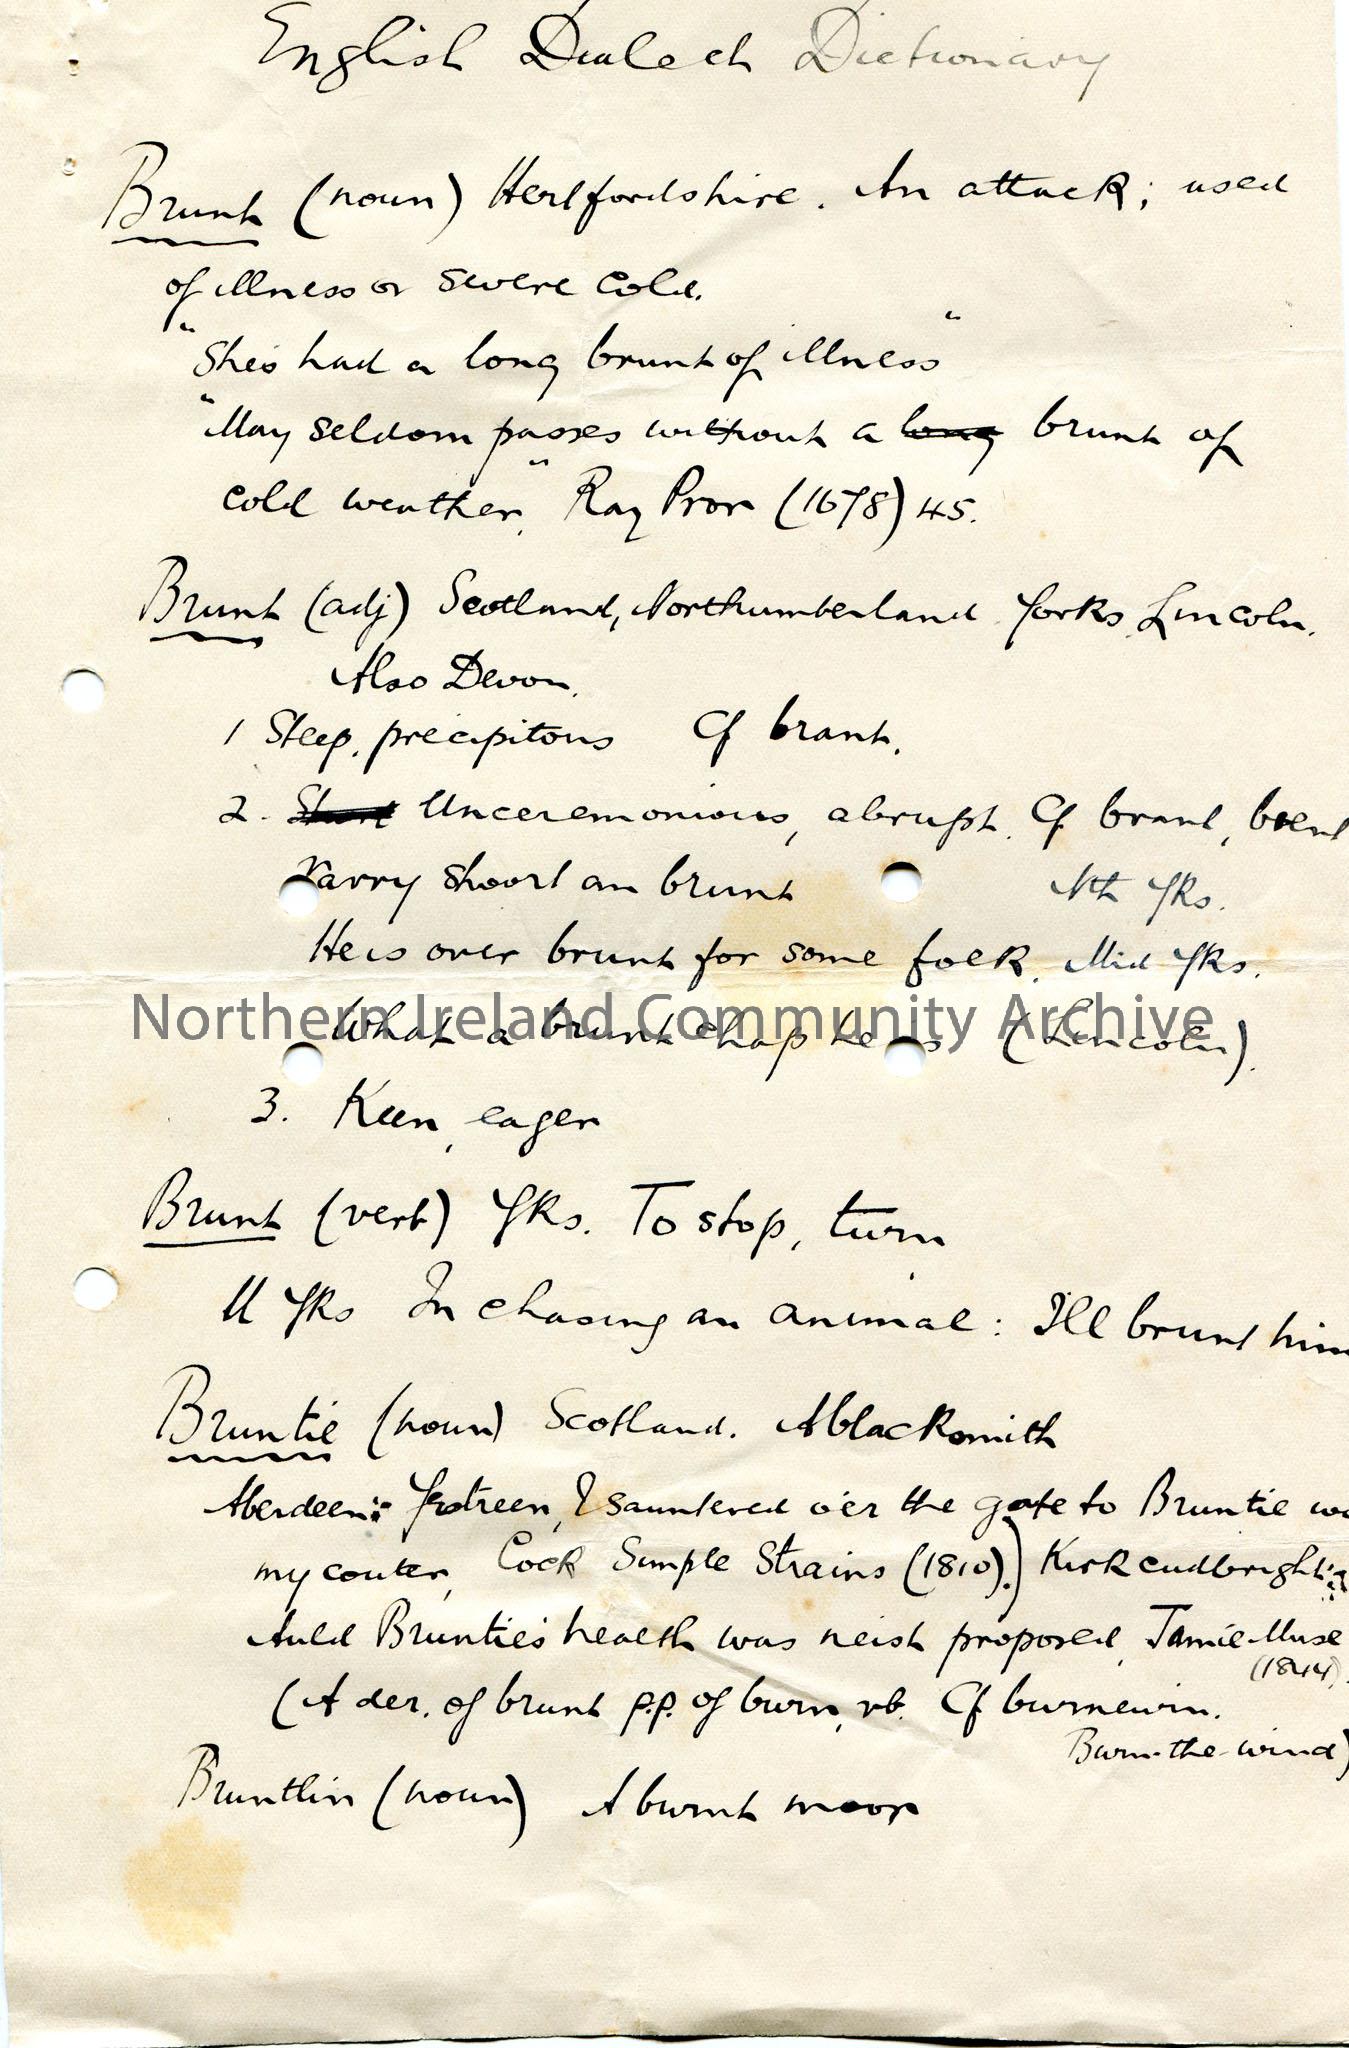 English Dialect Dictionary
Brunt (noun) Hertfordshire. An attack; used
of illness or severe cold.
"She's had a long brunt of illness"
"May seldom passes without a long brunt of
cold weather," Ray Prov (1678) 45.
Brunt (adj) Scotland, Northumberland Yorks Lincoln.
Also Devon.
1 Steep, precipitous Cf brant.
2. Short Unceremonious, abrupt. Cf brant, brent
Varry shoort an brunt Nth Yks.
He is over brunt for some folk. Mid Yks.
Northern Ireland Community Archive
What a brunt chap he is (Lincoln).
3. Keen, eager
Brunt (verb) Yks. To stop, turn
U Yks In chasing an animal: I'll brunt him
Bruntie (noun) Scotland. A blacksmith
Aberdeen: Yestreen, I sauntered o'er the gate to Bruntie
my couter, Cock Simple Strains (1810).) Kirkcudbright:
Auld Bruntie's health was neist proposed, Jamie Muse
(1844).
(A der. of brunt p.p. of burn, vb. Cf burnewin.
Burn-the-wind)
Bruntlin (noun) A burnt moor